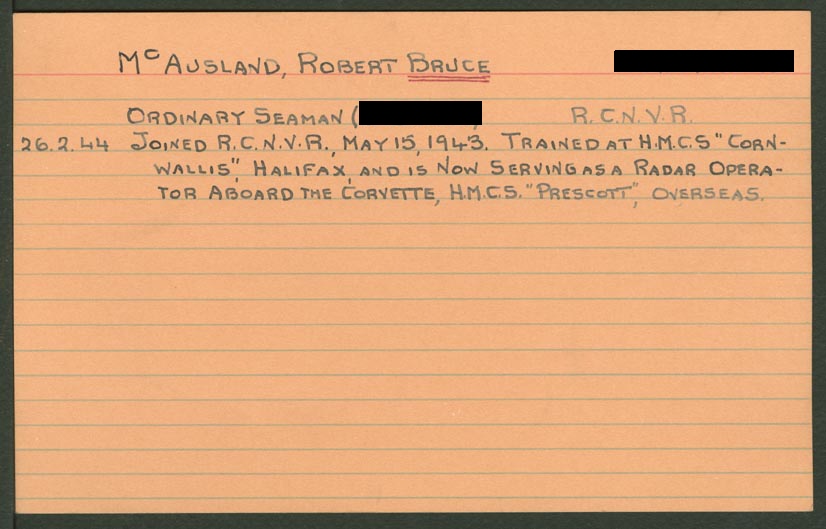 McAUSLAND, ROBERT BRUCE
ORDINARY SEAMAN ( R.C.N.V.R.
26.2.44 JOINED R.C.N.V.R., MAY 15, 1943. TRAINED AT H.M.C.S "CORN-
WALLIS", HALIFAX, AND IS NOW SERVING AS A RADAR OPERA-
TOR ABOARD THE CORVETTE, H.M.C.S. "PRESCOTT", OVERSEAS.